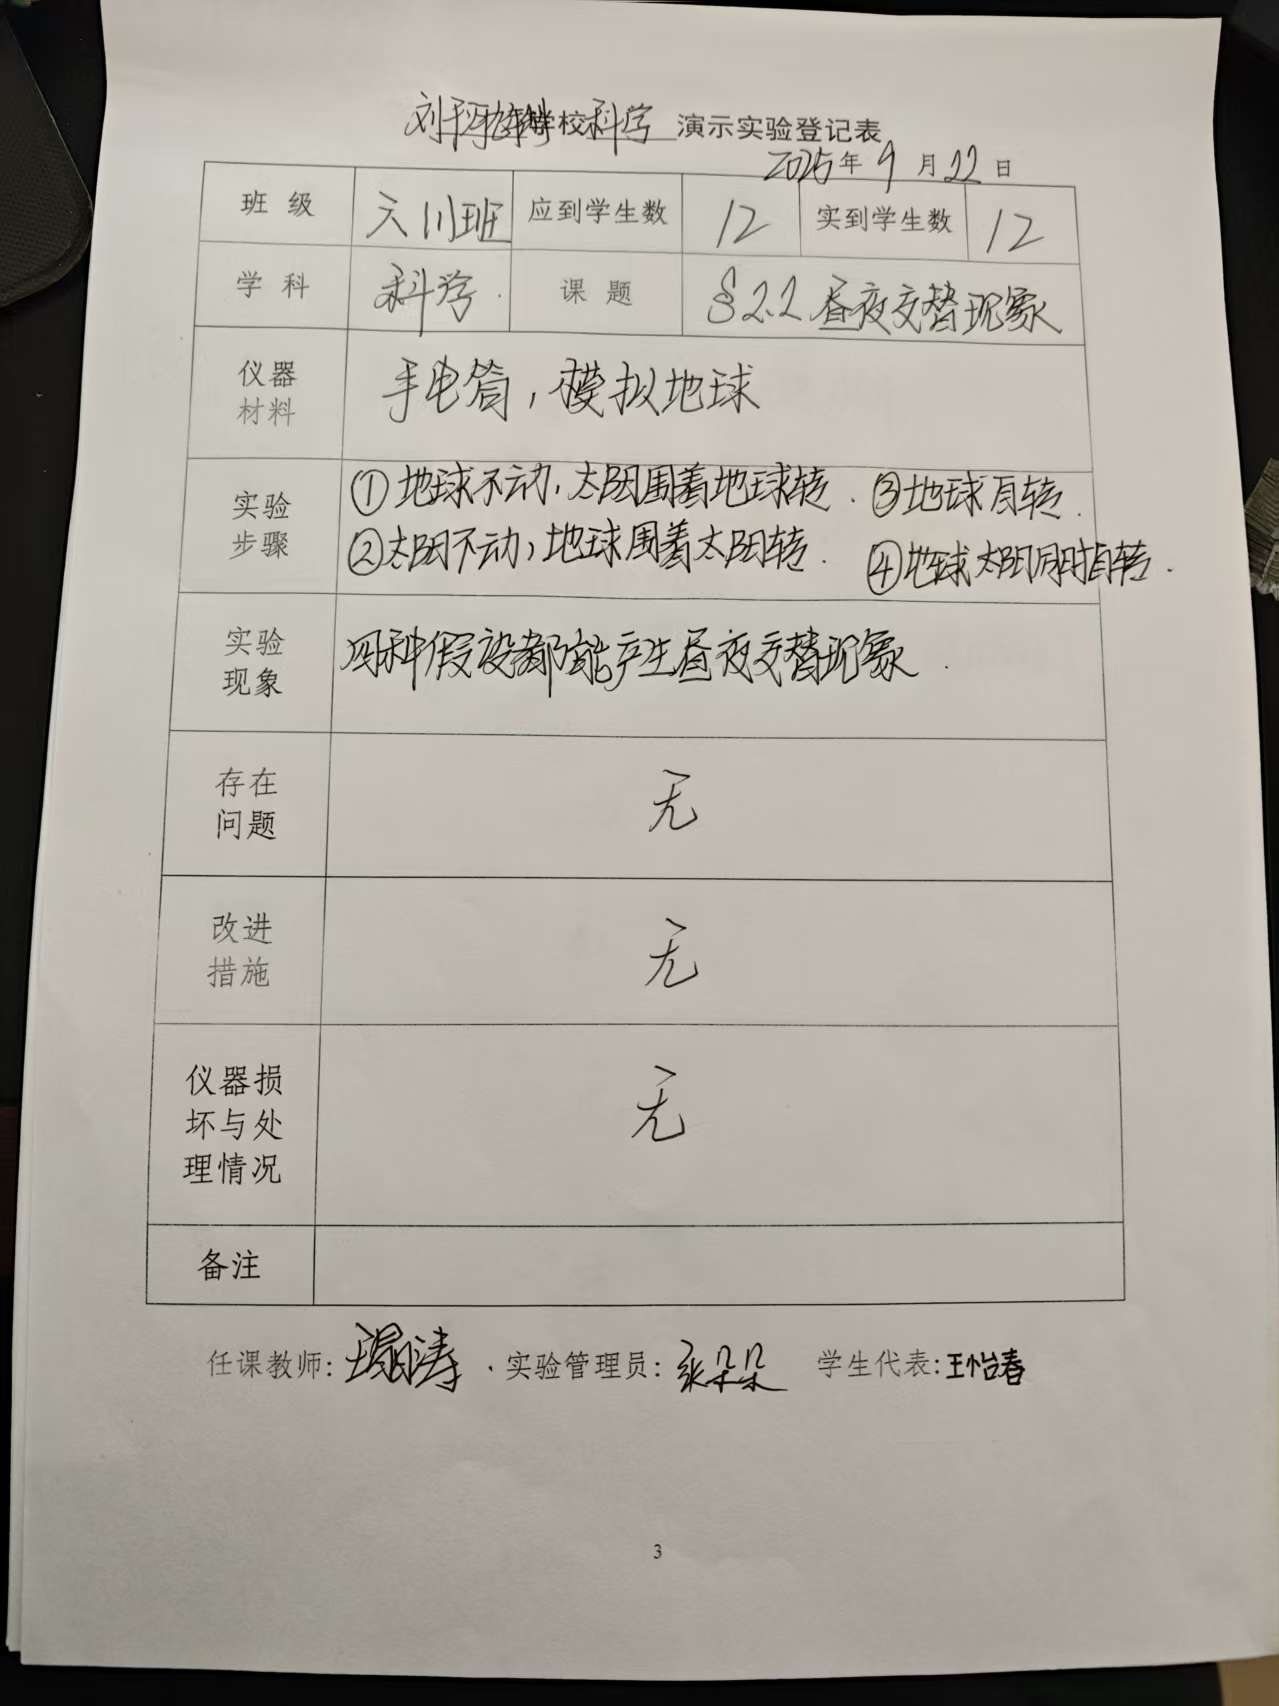 学校科学 演示实验登记表
2025年9月22日
班 级 六川班 应到学生数 12 实到学生数 12
学 科 科学 课 题 §2.2昼夜交替现象
仪器
材料
手电筒，模拟地球
实验
步骤
①地球不动，太阳围着地球转. ③地球自转.
②太阳不动，地球围着太阳转. ④地球太阳同时自转.
实验
现象
四种假设都能产生昼夜交替现象.
存在
问题
无
改进
措施
无
仪器损
坏与处
理情况
无
备注
任课教师: 实验管理员:张朵朵 学生代表:王怡春
3